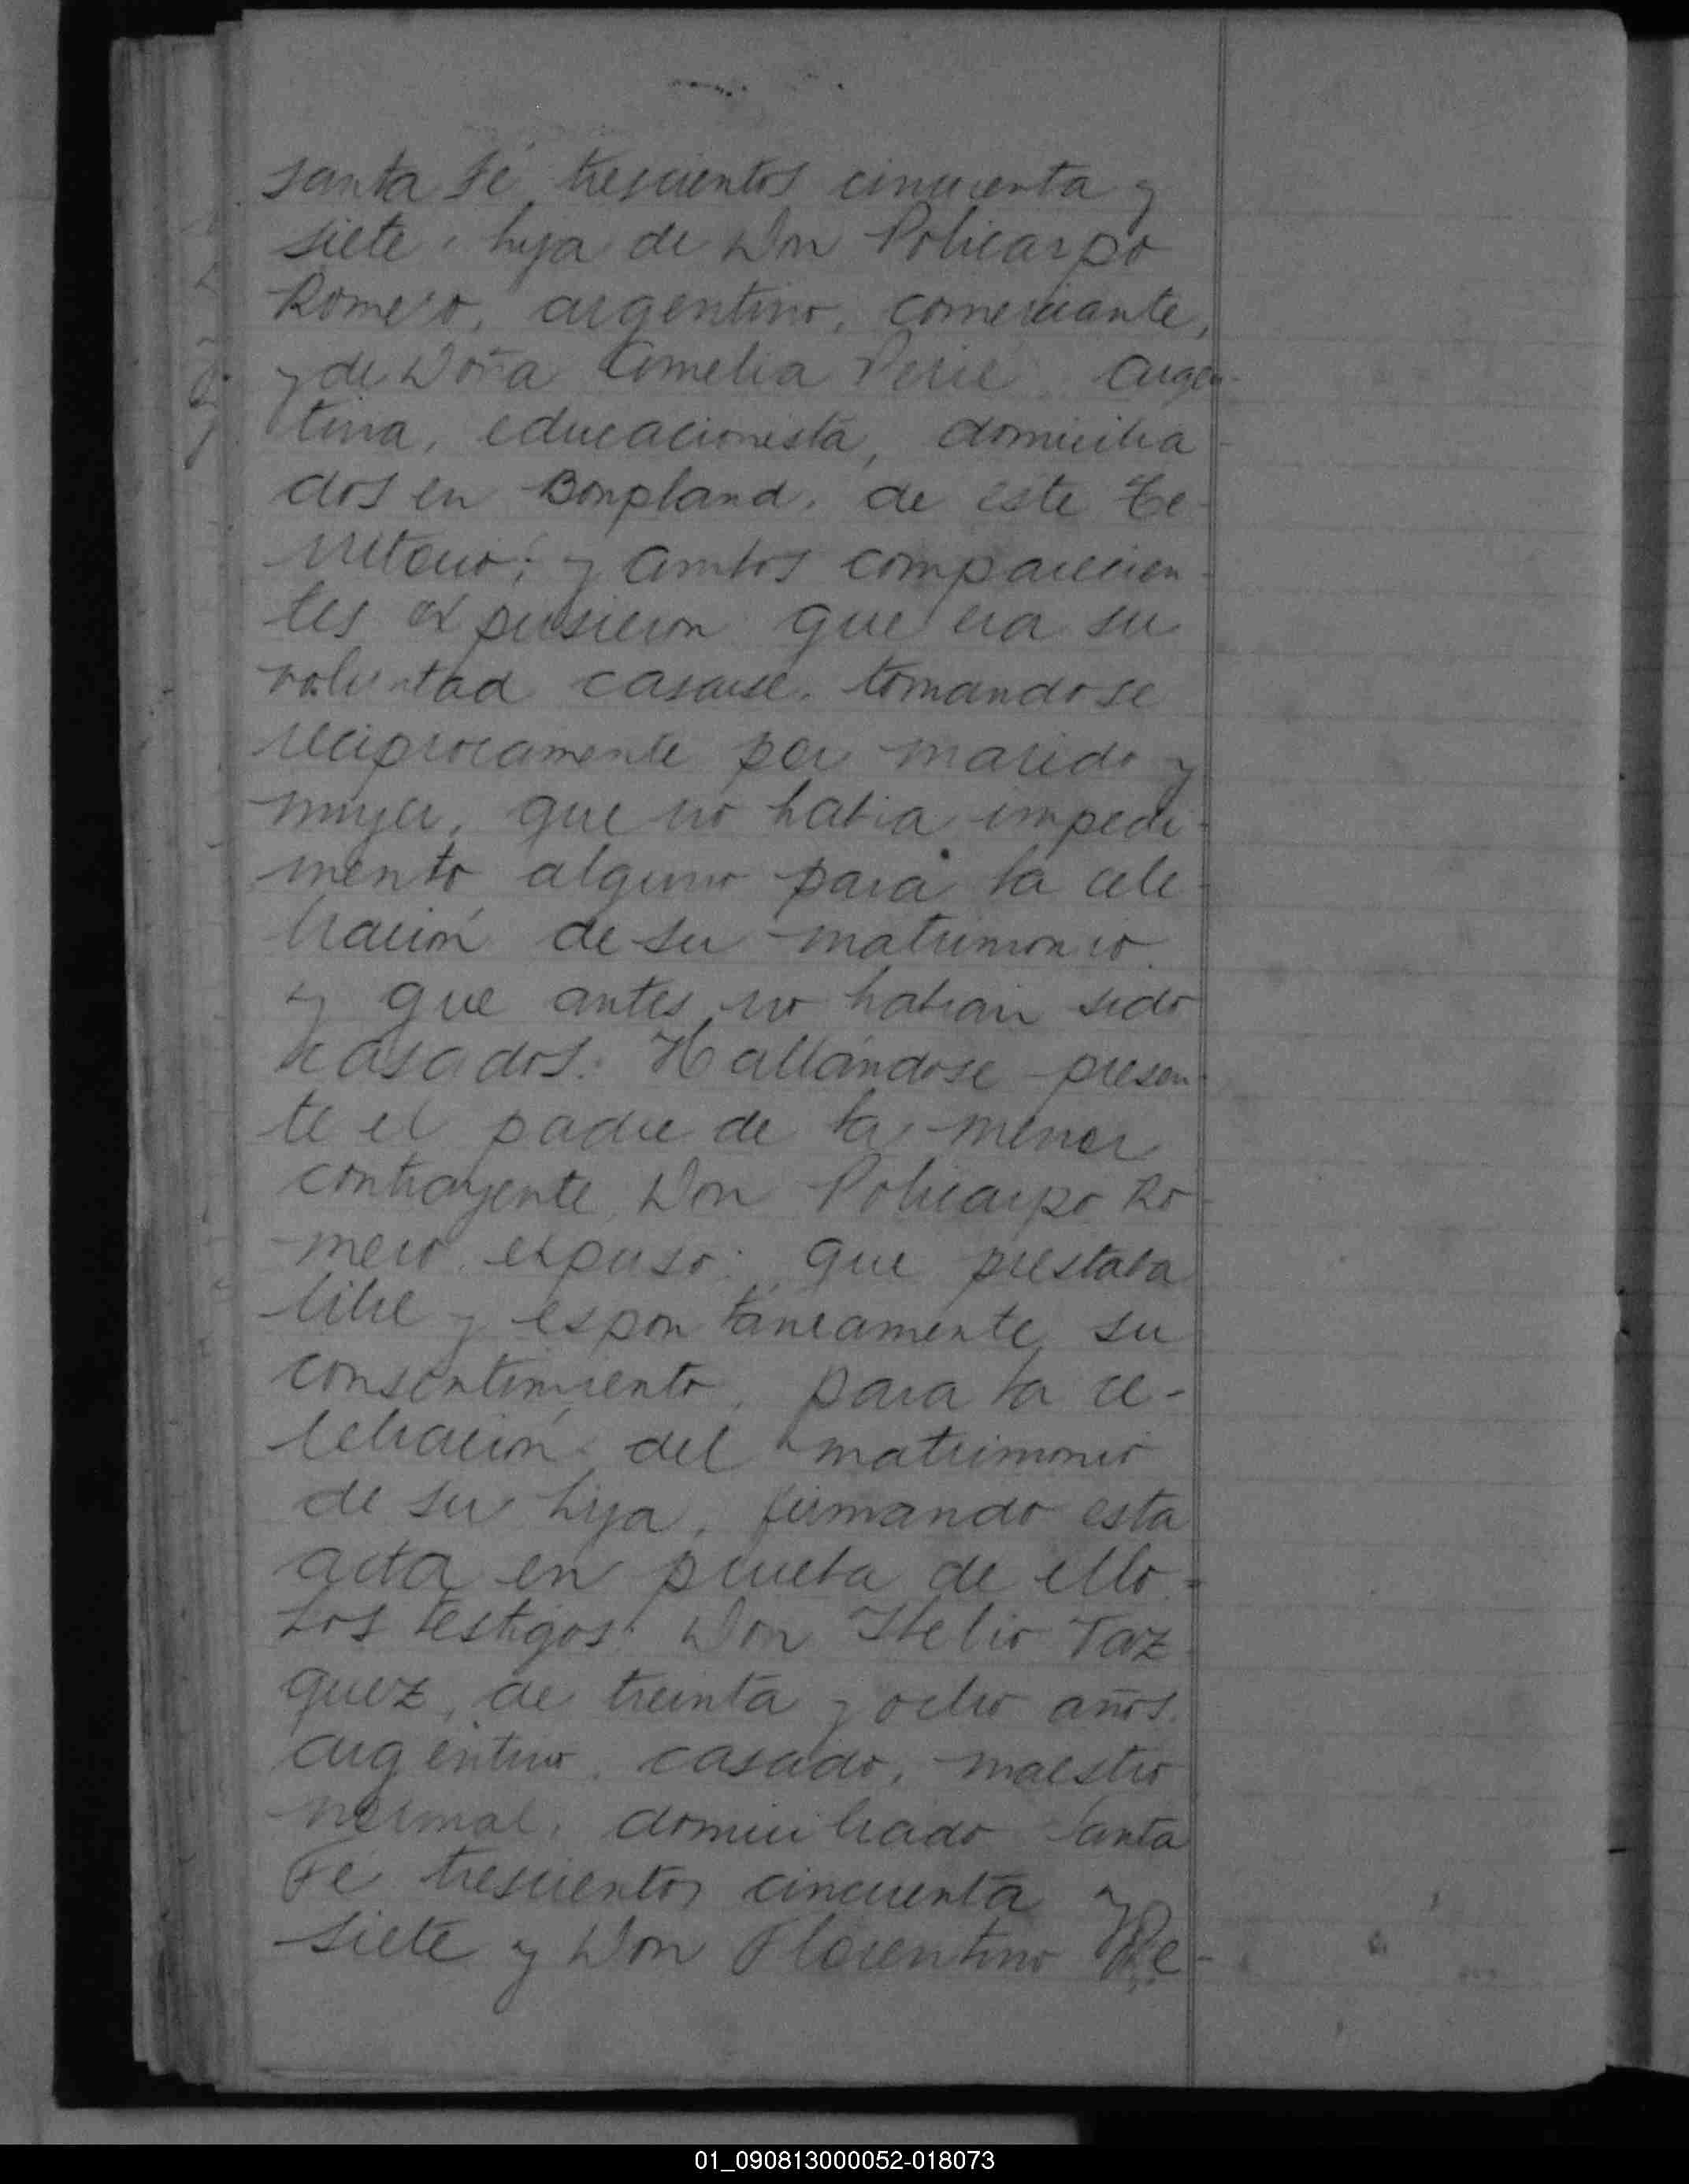 santa fé trescientos cincuenta y
siete, hija de Don Policarpo
Romero, argentino, comerciante,
y de Doña Amelia Perié argen-
tina, educacionista, domicilia-
dos en Bonpland, de este te-
rritorio; y ambos comparecien-
tes expusieron que era su
voluntad casarse, tomandose
reciprocamente por marido y
mujer, que no habia impedi-
mento alguno para la cele-
bración de su matrimonio
y que antes no habian sido
casados. Hallándose presen-
te el padre de la menor
contrayente, Don Policarpo Ro-
mero expuso: que prestaba
libre y espontáneamente su
consentimiento, para la ce-
lebración del matrimonio
de su hija, firmando esta
acta en prueba de ello =
Los testigos Don Stelio Taz
quez, de treinta y ocho años,
argentino, casado, maestro
normal, domiciliado Santa
Fé trescientos cincuenta y
siete y Don Florentino Pe-
01_090813000052-018073